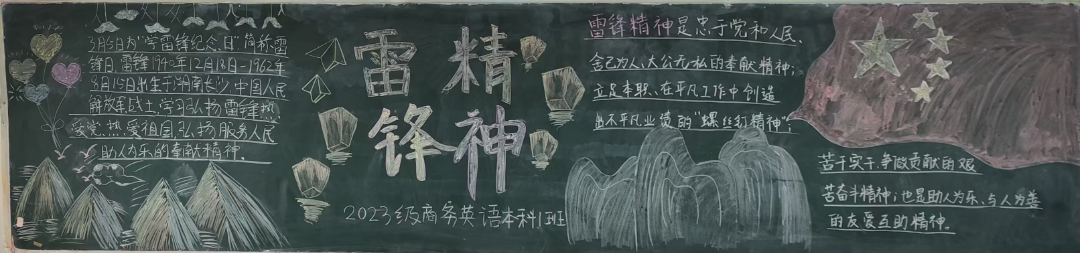 3月5日为"学雷锋纪念日"简称雷
锋日.雷锋1940年12月18日-1962年
8月15日出生于湖南长沙,中国人民
解放军战士,学习弘扬雷锋热
爱党,热爱祖国,弘扬服务人民
助人为乐的奉献精神.
雷锋
精神
2023级商务英语本科1班
雷锋精神是忠于党和人民、
舍己为人、大公无私的奉献精神;
立足本职、在平凡工作中创造
出不平凡业绩的"螺丝钉精神";
苦干实干、争做贡献的艰
苦奋斗精神;也是助人为乐、与人为善
的友爱互助精神。